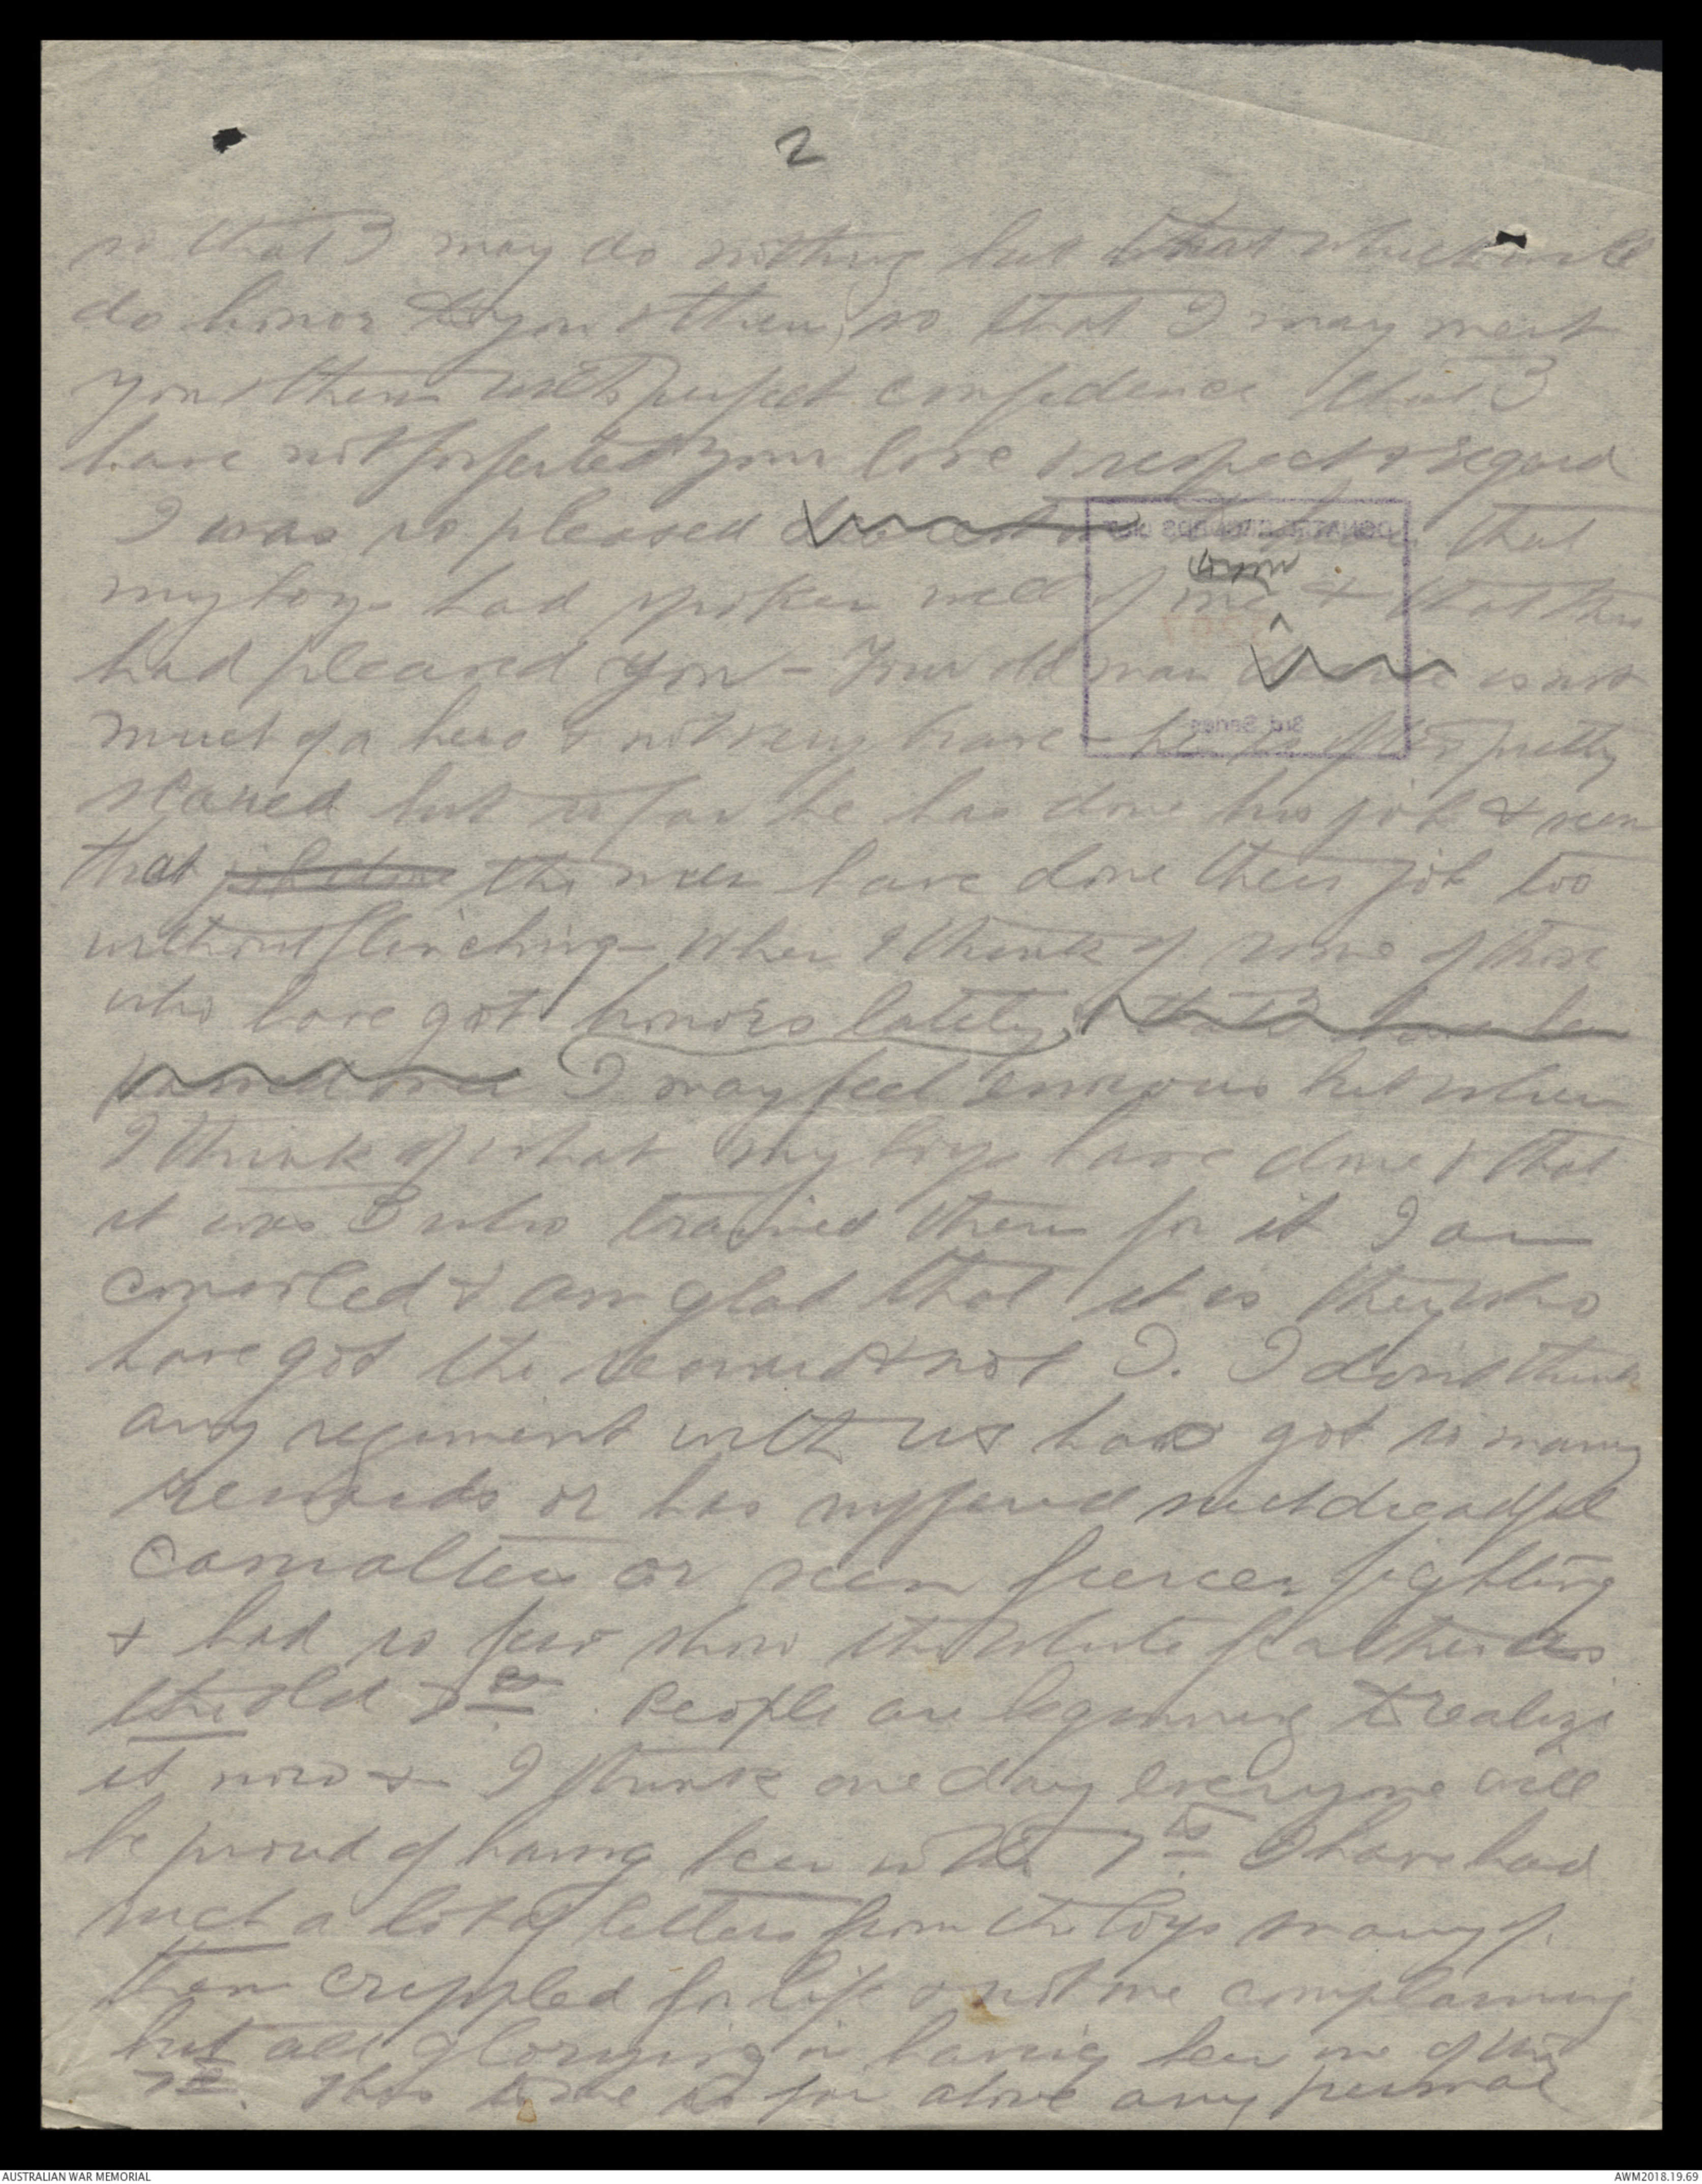 2
so that I may do nothing but that which will
do honor to you & them, so that I may meet
you & them with perfect confidence that I
have not forfeited your love & respect & regard
I was so pleased that
my boys had spoken well of me & that this
had pleased you - Your old man is not
much of a hero & not very brave - he is often pretty
scared but so far he has done his job & seen
that job done the men have done their job too
without flinching - When I think of some of those
who have got honors lately, & that I have been
passed over I may feel envious but when
I think of what my boys have done & that
it was I who trained them for it I am
consoled & am glad that it is they who
have got the reward & not I. I don't think
any regiment with us has got so many
rewards or has suffered such dreadful
casualties or seen fiercer fighting
& had so few show the white feather as
the old 7th. People are beginning to realize
it now & I think one day everyone will
be proud of having been with the 7th. I have had
such a lot of letters from the boys many of
them crippled for life & not one complaining
but all glorying in having been one of the
7th. This to me is far above any personal
3rd Series
AUSTRALIAN WAR MEMORIAL
AWM2018.19.69